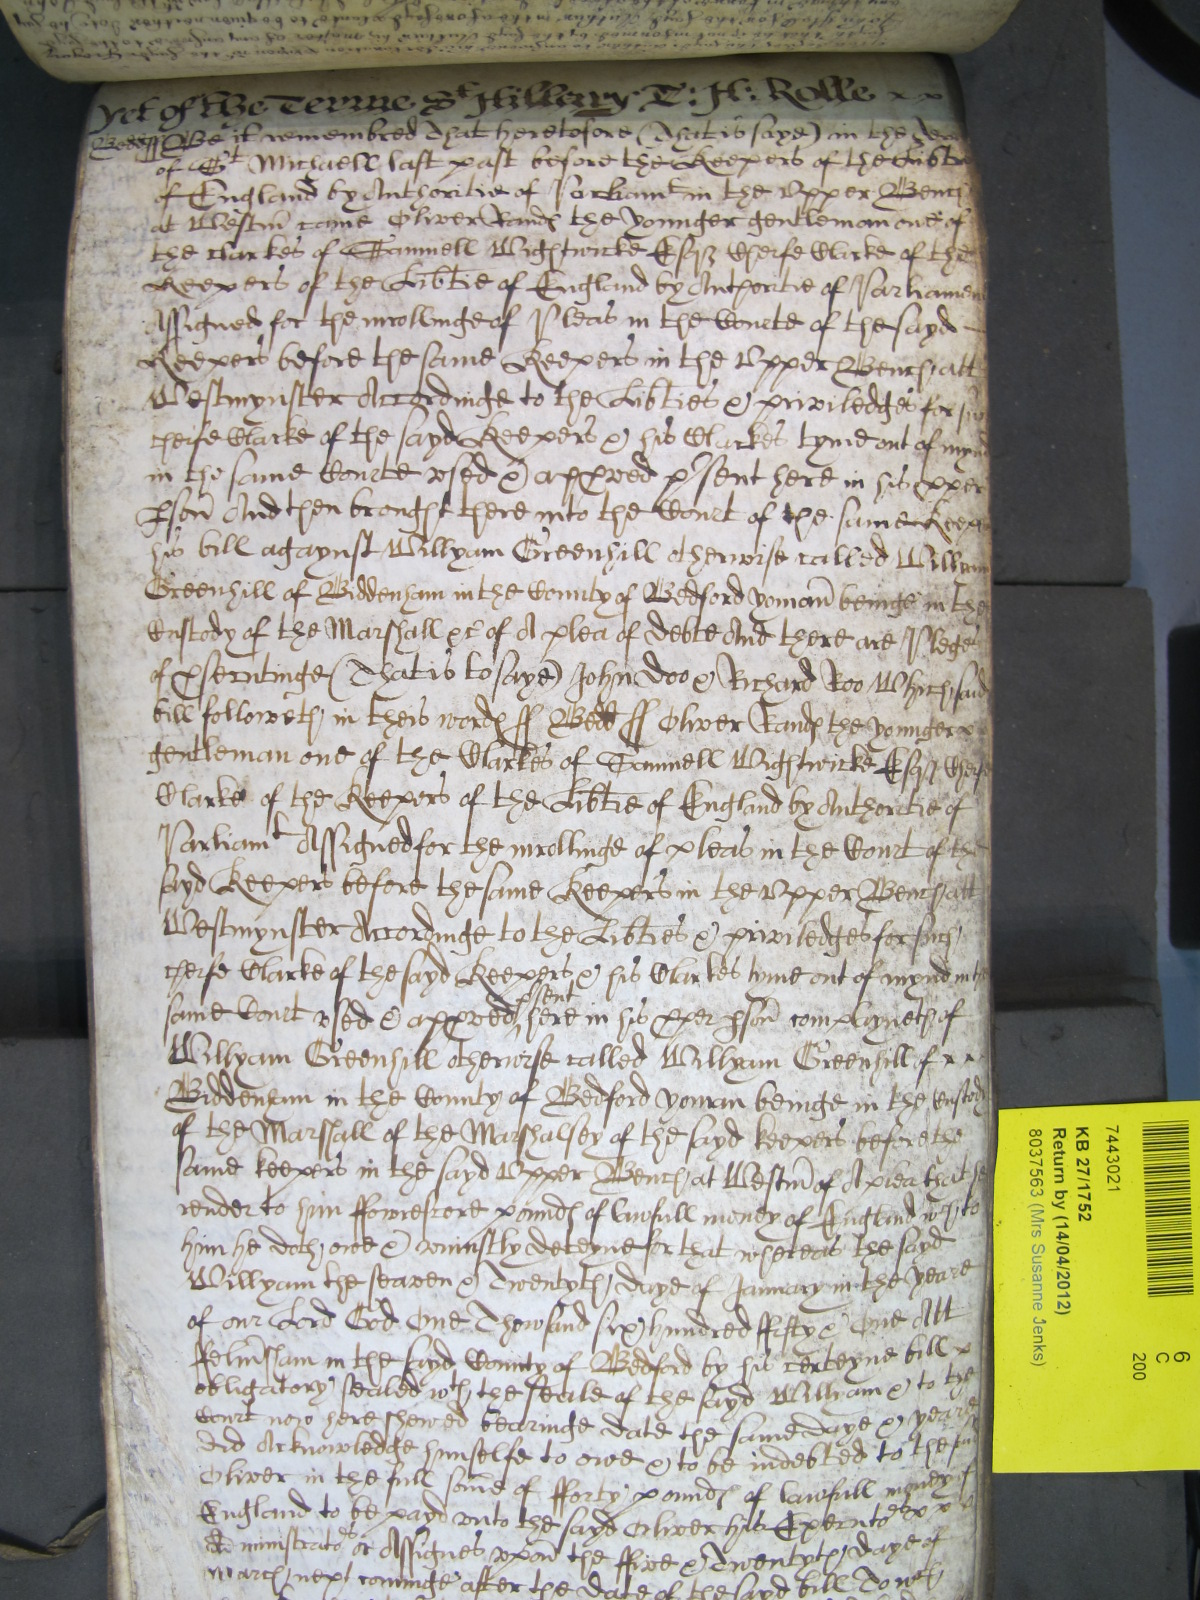 yet of the Terme St Hillarry T: H: Rolle x x
Bedd ff Be it remembred That heretofore (That is saye) in the Terme
of St Michaell last past before the Keepers of the Libtie
of England by Authoritie of Parliamt in the Upper Bench
at Westm came Oliver the younger gentleman one of
the Clarkes of Samuell Wightwicke Esqr Cheife Clarke of the
Keepers of the Libtie of England by Authoritie of Parliament
Assigned for the inrollinge of Pleas in the Courte of the sayd
Keepers before the same Keepers in the Upper Bench att
Westmynster Accordinge to the Libties & priviledges for such
cheife Clarke of the sayd Keepers & his Clarkes tyme out of mynd
in the same Courte used & appved psent here in his pper
pson And then brought there into the Court of the same Keepers
his bill agaynst Willyam Greenhill otherwise called Willyam
Greenhill of Biddenham in the County of Bedford yoman beinge in the
Custody of the Marshall &c of A plea of debte And there are Pledges
of psecutinge (That is to saye) John Doo & Richard Roo Which said
bill followeth in theis words ff Bedd ff Oliver the younger x
gentleman one of the Clarkes of Samuell Wightwicke Esqr Cheife
Clarke of the Keepers of the Libtie of England by Authoritie of
Parliamt Assigned for the inrollinge of pleas in the Court of the
sayd Keepers before the same Keepers in the Upper Bench att
Westmynster Accordinge to the Libties & priviledges for such
cheife Clarke of the sayd Keepers & his Clarkes tyme out of mynd in the
same Court used & appved psent here in his pper pson complayneth of
Willyam Greenhill otherwise called Willyam Greenhill of x x
Biddenham in the County of Bedford yoman beinge in the Custody
of the Marshall of the Marshalsey of the sayd keepers before the
same keepers in the sayd Upper Bench at Westm of A plea that he
render to him ffowrescore pounds of lawfull money of England wch to
him he doth owe & uniustly deteyne for that whereas the sayd
Willyam the seaven & Twentyth daye of January in the yeare
of our Lord God One Thowsand six hundred ffifty & One Att
ffelmsham in the sayd County of Bedford by his certeyne bill x
obligatory sealed wth the seale of the sayd William & to the
Court now here shewed bearinge date the same daye & yeare
did Acknowledge himselfe to owe & to be indebted to the said
Oliver in the full some of fforty pounds of lawfull money of
England to be payd unto the sayd Oliver his Executors x x
Administrators or Assignes upon the ffive & Twentyth daye of
March next cominge after the date of the sayd bill To wch
7443021
KB 27/1752
Return by (14/04/2012)
8037563 (Mrs Susanne Jenks)
6
C
200